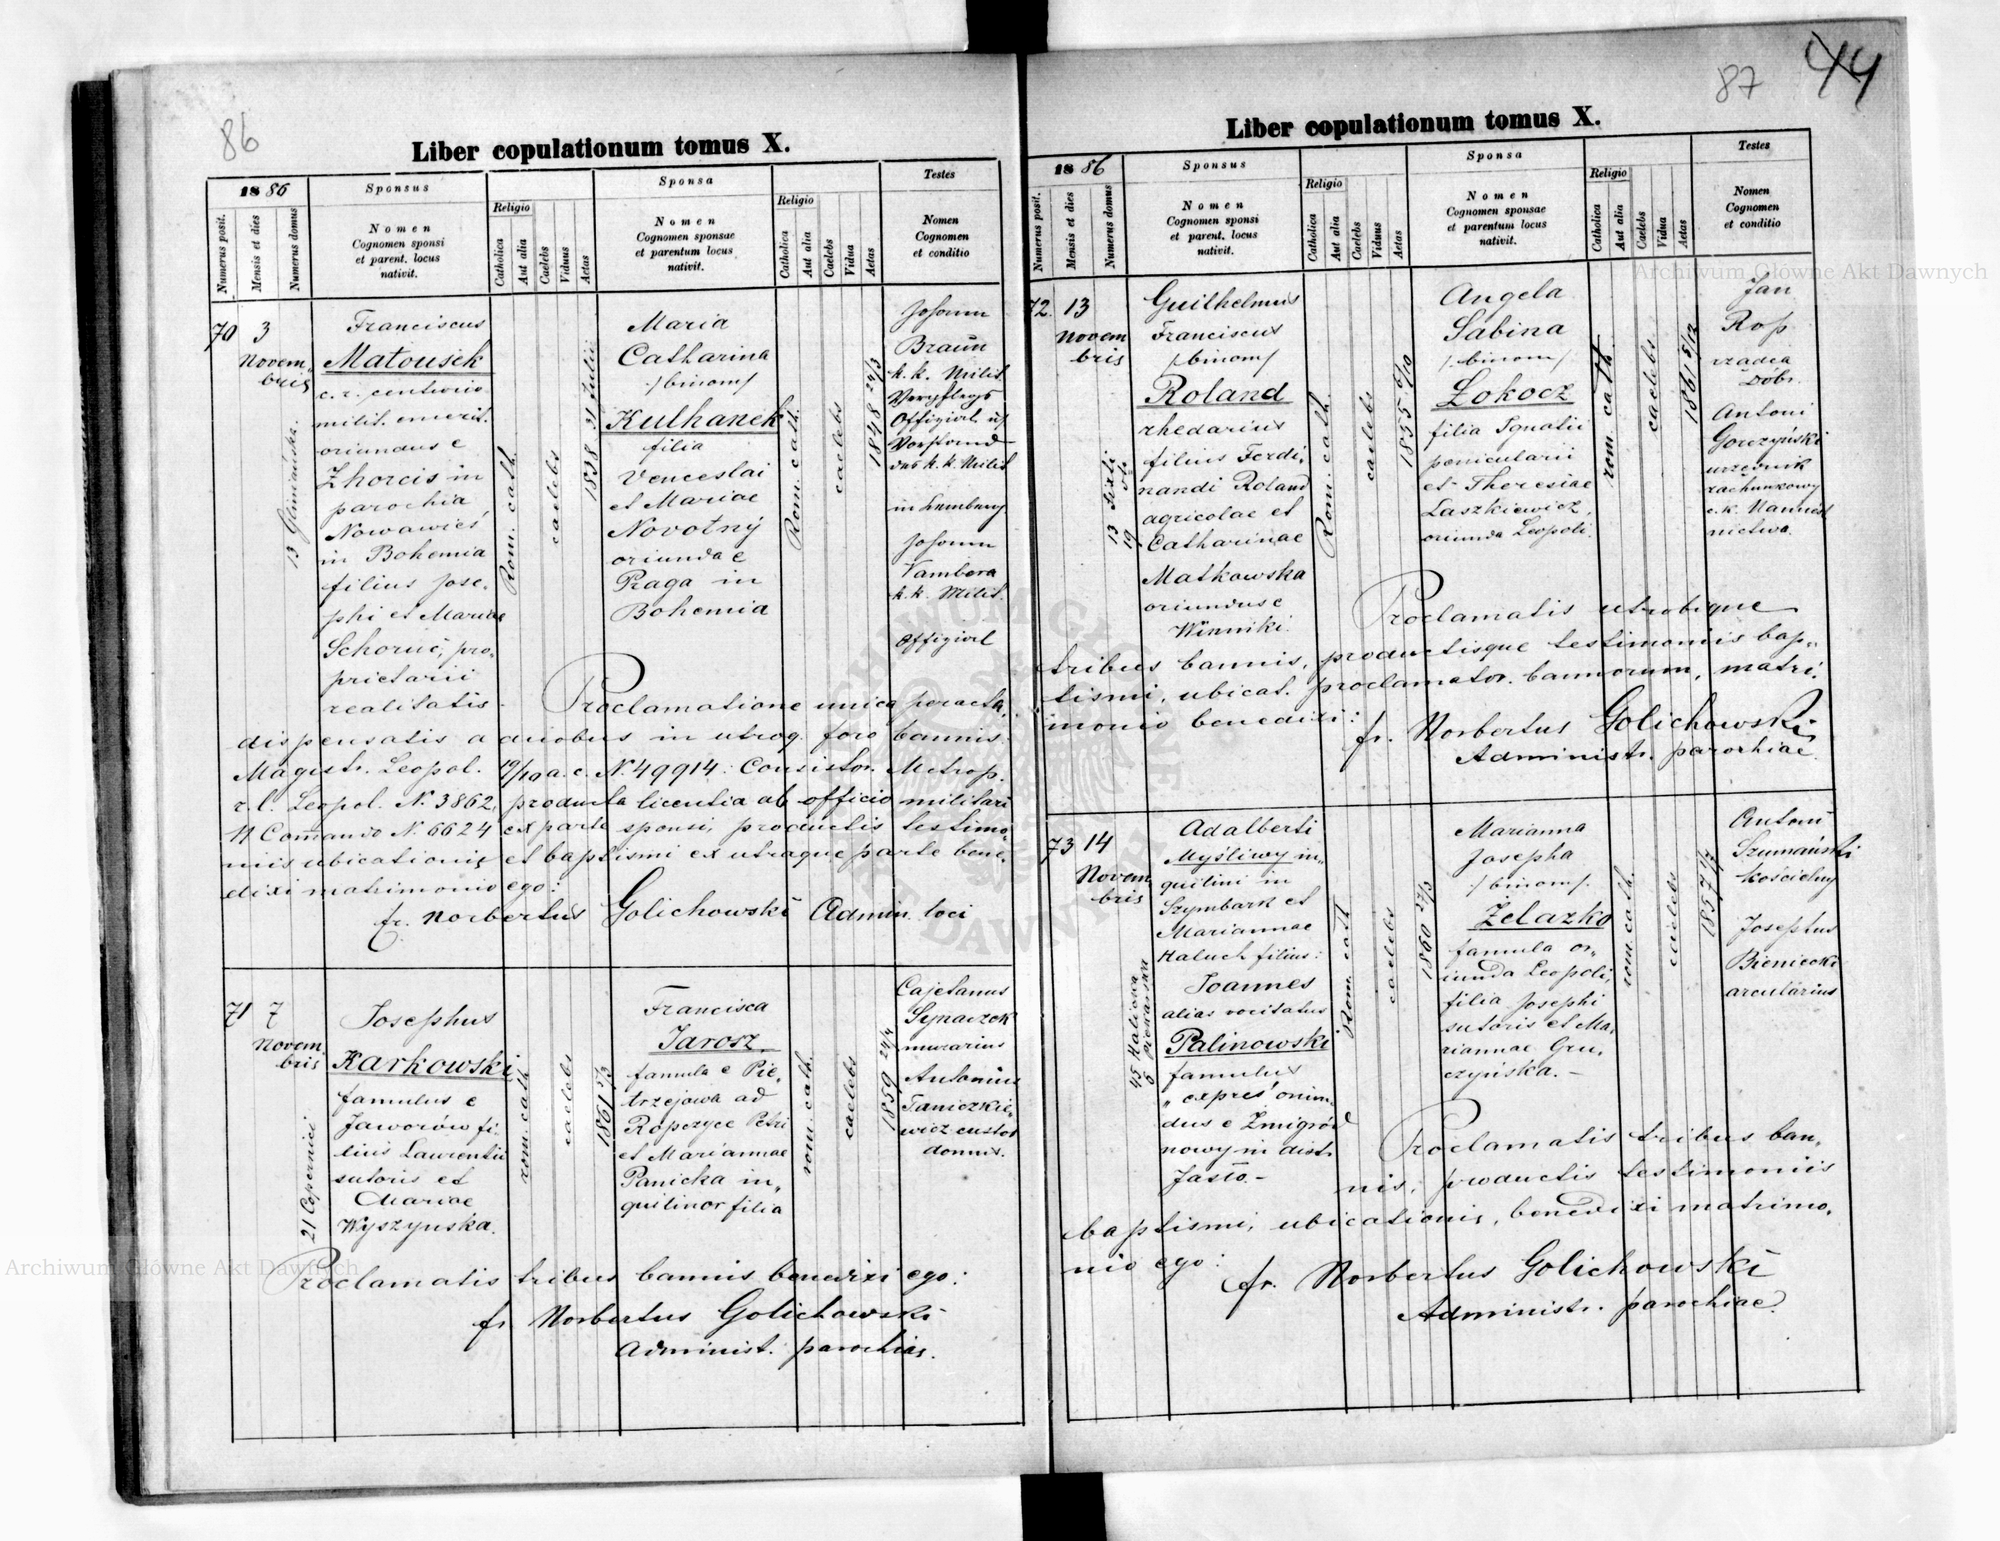 86
Liber copulationum tomus X.
1886
Sponsus
Sponsa
Testes
Numerus posit.
Mensis et dies
Numerus domus
Nomen
Cognomen sponsi
et parent. locus
nativit.
Religio
Catholica
Aut alia
Caelebs
Viduus
Aetas
Nomen
Cognomen sponsae
et parentum locus
nativit.
Religio
Catholica
Aut alia
Caelebs
Vidua
Aetas
Nomen
Cognomen
et conditio
70
3
Novem
bris
13 Gliniańska.
Franciscus
Matousek
c. r. centurio
milit. emerit.
oriundus e
Zhorcis in
parochia
Nowawieś
in Bohemia
filius Jose-
phi et Mariae
Schoruč, pro-
prietarii
realitatis
Rom. cath.
caelebs
1838 31 Julii
Maria
Catharina
/binom/
Kulhanek
filia
Venceslai
et Mariae
Novotný
oriunda e
Praga in
Bohemia
Rom. cath.
caelebs
1848 24/3
Johann
Braun
k. k. Milit.
Verpflegs
Offizial u/
Vorstand
des k. k. Milit.
in Lemberg
Johann
Vambera
k. k. Milit.
Offizial
Proclamatione unica peracta,
dispensatis a duobus in utroq. foro bannis:
Magistr. Leopol. 19/10 a. c. N. 49914: Consistor. Metrop.
r. l. Leopol. N. 3862, producta licentia ab officio militari
11 Comando N. 6624 ex parte sponsi, productis testimo-
niis ubicationis et baptismi ex utraque parte bene-
dixi matrimonio ego:
fr. Norbertus Golichowski Admin. loci
71
7
Novem
bris
21 Copernici
Josephus
Karkowski
famulus e
Jaworów fi-
lius Laurentii
sutoris et
Mariae
Wyszynska.
rom. cath.
caelebs
Francisca
Jarosz
famula e Pie-
trzejowa ad
Ropczyce Petri
et Mariannae
Panicka in-
quilinor filia
rom. cath.
caelebs
1859 24/4
Cajetanus
Synaczek
murarius
Antonius
Janiczkie-
wicz custos
domus.
Proclamatis tribus bannis benedixi ego:
fr Norbertus Golichowski
Administ. parochiae.
87
44
Liber copulationum tomus X.
1886
Sponsus
Sponsa
Testes
Numerus posit.
Mensis et dies
Numerus domus
Nomen
Cognomen sponsi
et parent. locus
nativit.
Religio
Catholica
Aut alia
Caelebs
Viduus
Aetas
Nomen
Cognomen sponsae
et parentum locus
nativit.
Religio
Catholica
Aut alia
Caelebs
Vidua
Aetas
Nomen
Cognomen
et conditio
72.
13
Novem
bris
13 Sixti
19
Guilhelmus
Franciscus
/binom/
Roland
rhedarius
filius Ferdi-
nandi Roland
agricolae et
Catharinae
Matkowska
oriundus e
Winniki.
Rom. cath.
caelebs
1855 6/10
Angela
Sabina
/binom/
Łokocz
filia Ignatii
penicularii
et Theresiae
Laszkiewicz,
oriunda Leopoli.
rom. cath.
caelebs
1861 5/12
Jan
Rop
rządca
Dóbr.
Antoni
Gorczyński
urzędnik
rachunkowy
c. k. Namiest
nictwa.
Proclamatis utrobique
tribus bannis, productisque testimoniis bap-
tismi, ubicat. proclamator. bannorum, matri-
monio benedixi:
fr. Norbertus Golichowski
Administr. parochiae
73
14
Novem
bris
45 Halicka
5 Piekarska
Adalberti
Myśliwy in-
quilini in
Szymbark et
Mariannae
Haluch filius:
Joannes
alias vocitatus
Palinowski
famulus
"expres" oriun-
dus e Żmigród
nowy in distr.
Jasło.-
Rom. cath
caelebs
1860 27/3
Marianna
Josepha
/binom/.
Żelazko
famula or-
iunda Leopoli,
filia Josephi
sutoris et Ma-
riannae Gru-
czyńska.-
rom. cath.
caelebs
Antoni
Szumański
kościelny
Josephus
Bieniecki
arcularius
Proclamatis tribus ban-
nis, productis testimoniis
baptismi, ubicationis, benedixi matrimo-
nio ego:
fr. Norbertus Golichowski
Administr. parochiae.
Archiwum Główne Akt Dawnych
Archiwum Główne Akt Dawnych